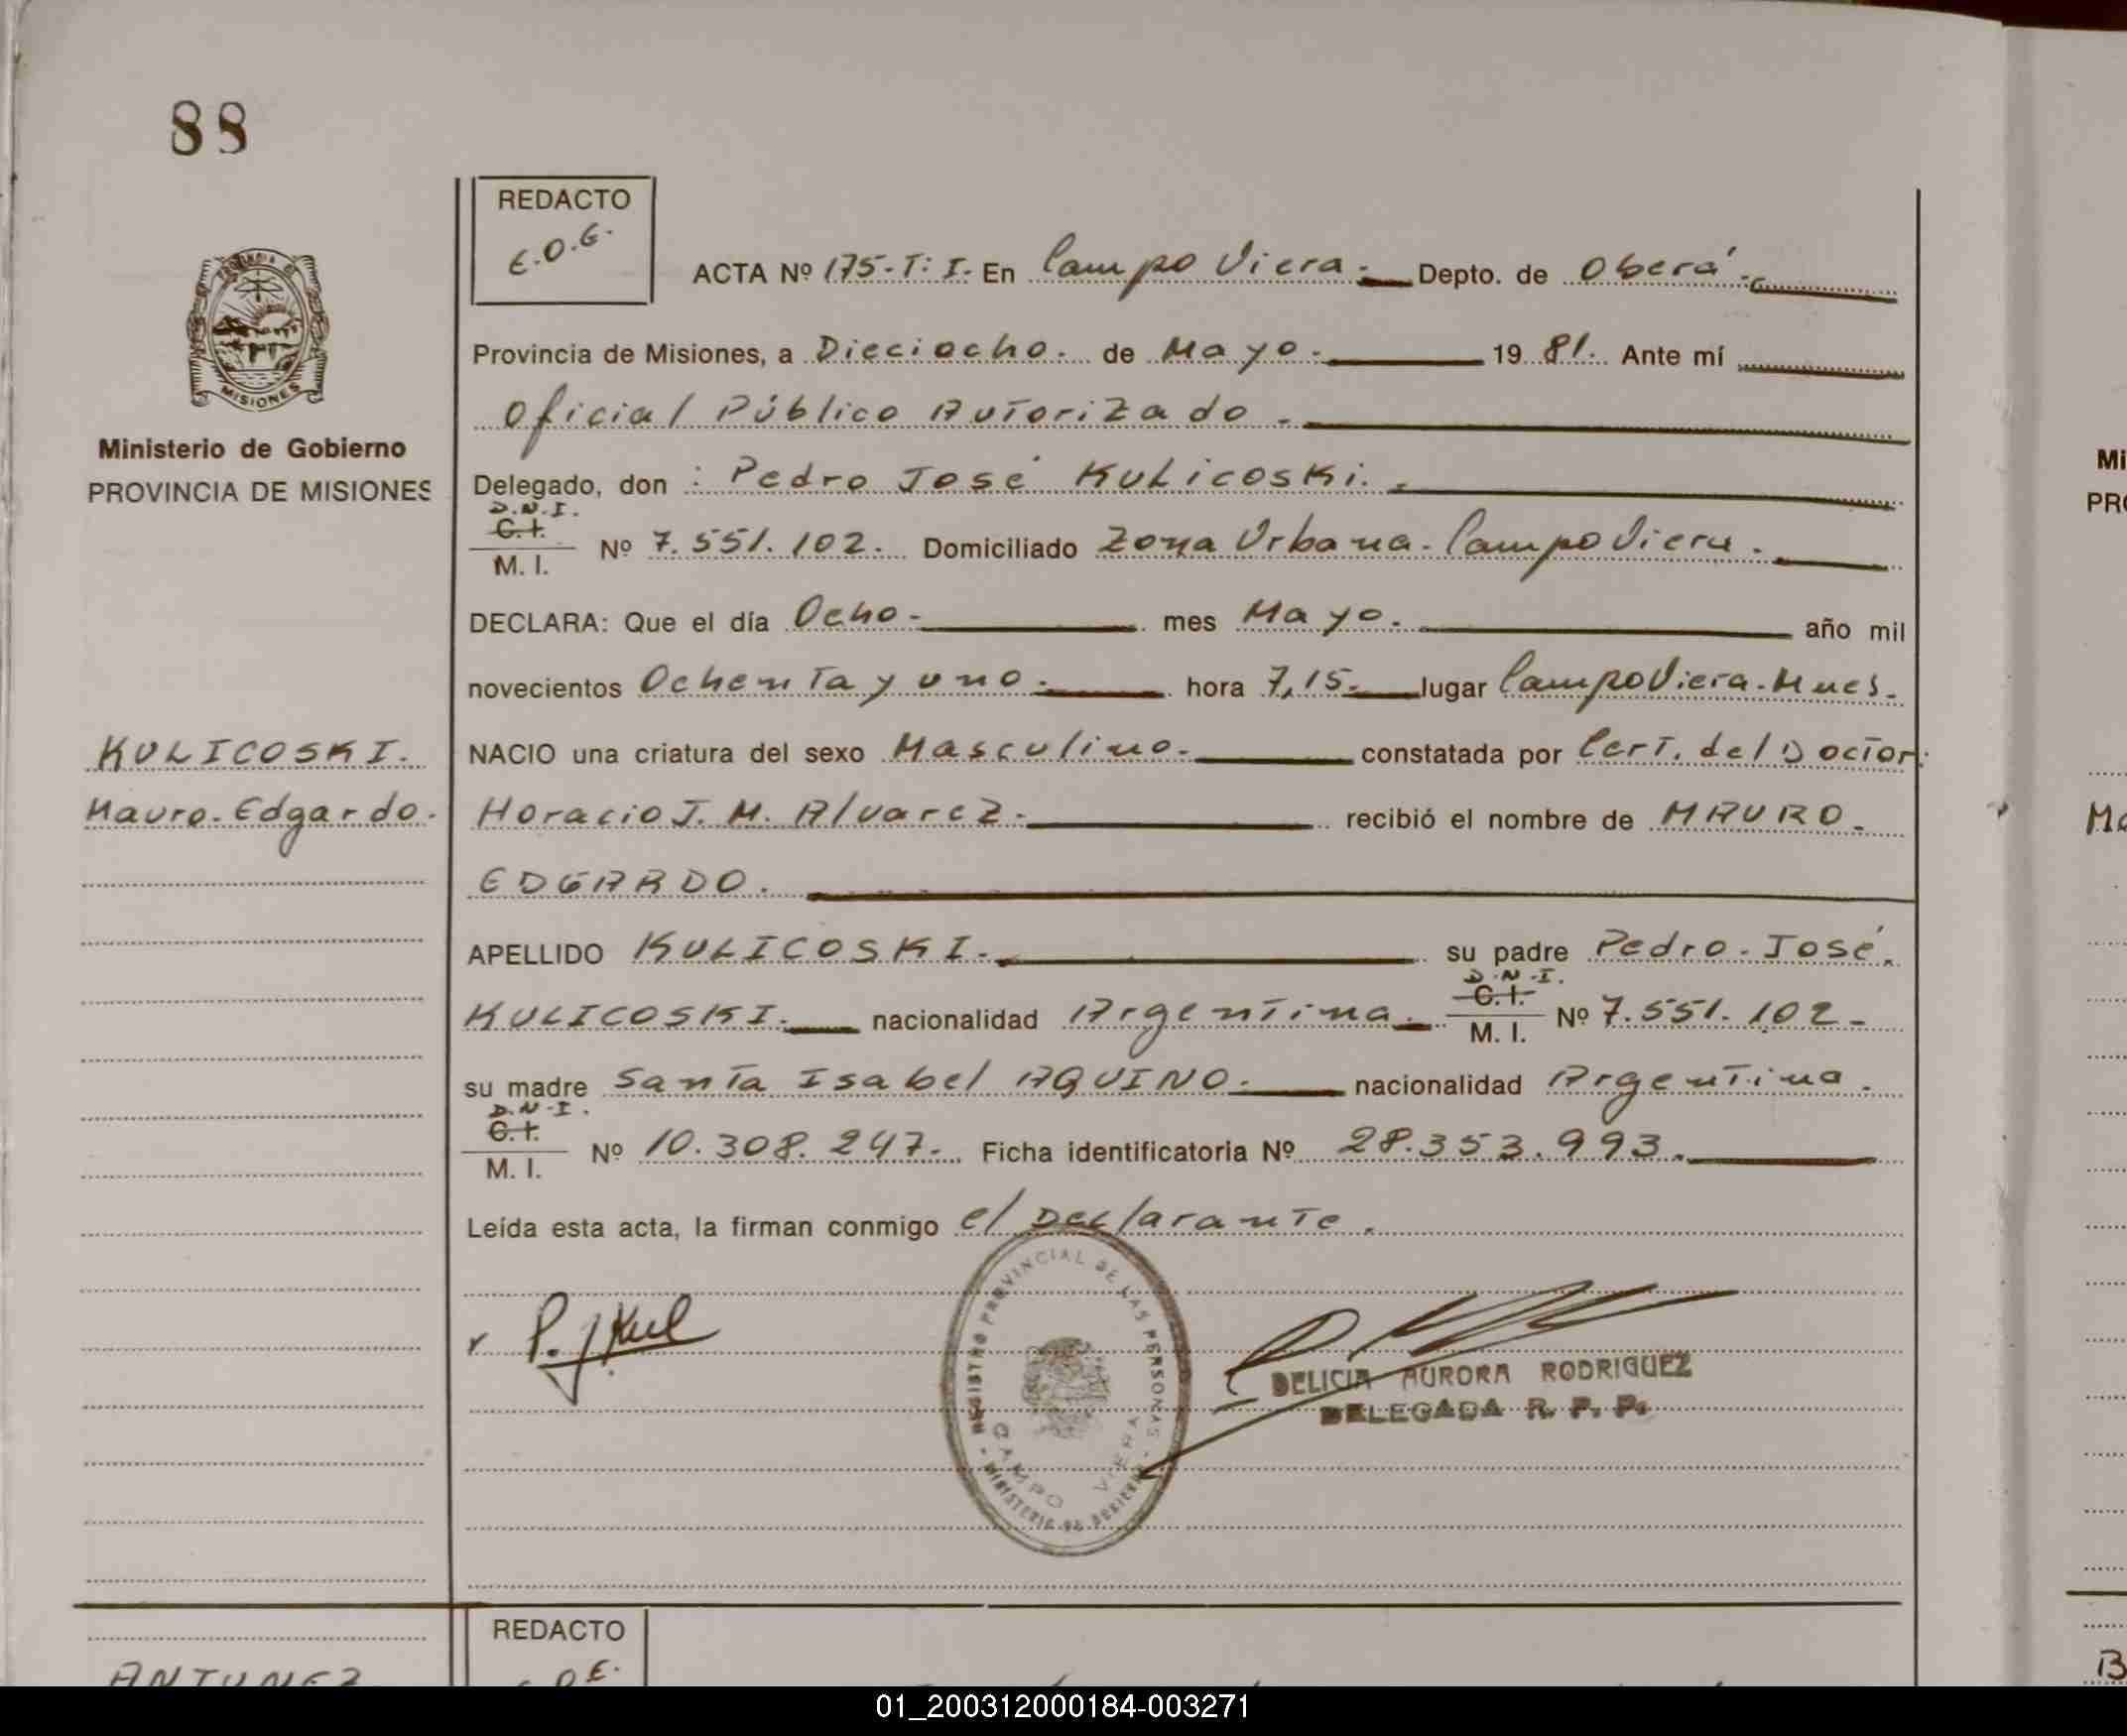 88
REDACTO
E.O.G.
ACTA Nº 175-T: I. En Campo Viera.- Depto. de Oberá.-
Provincia de Misiones, a Dieciocho. de Mayo.- 19 81. Ante mí
Oficial Público Autorizado.-
MISIONES
Ministerio de Gobierno
PROVINCIA DE MISIONES
Delegado, don : Pedro José Kulicoski.-
D.N.I.
C.I.
M. I. Nº 7.551.102. Domiciliado Zona Urbana-Campo Viera.-
DECLARA: Que el día Ocho.- mes Mayo.- año mil
novecientos Ochenta y uno.- hora 7,15.- lugar Campo Viera-Mnes.
KULICOSKI.
Mauro-Edgardo.
NACIO una criatura del sexo Masculino.- constatada por Cert. del Doctor:
Horacio J. M. Alvarez.- recibió el nombre de MAURO-
EDGARDO.
APELLIDO KULICOSKI.- su padre Pedro-José.
KULICOSKI.- nacionalidad Argentina.-
D.N.I.
C.I.
M. I. Nº 7.551.102-
su madre Santa Isabel AQUINO.- nacionalidad Argentina.
D.N-I.
C.I.
M. I. Nº 10.308.247.- Ficha identificatoria Nº 28.353.993.-
Leída esta acta, la firman conmigo el Declarante.
P. J Kul
REGISTRO PROVINCIAL DE LAS PERSONAS - MINISTERIO DE GOBIERNO -
CAMPO VIERA
DELICIA AURORA RODRIGUEZ
DELEGADA R. P. P.
REDACTO
ANTUNEZ
Mi
PRO
Ma
B
01_200312000184-003271